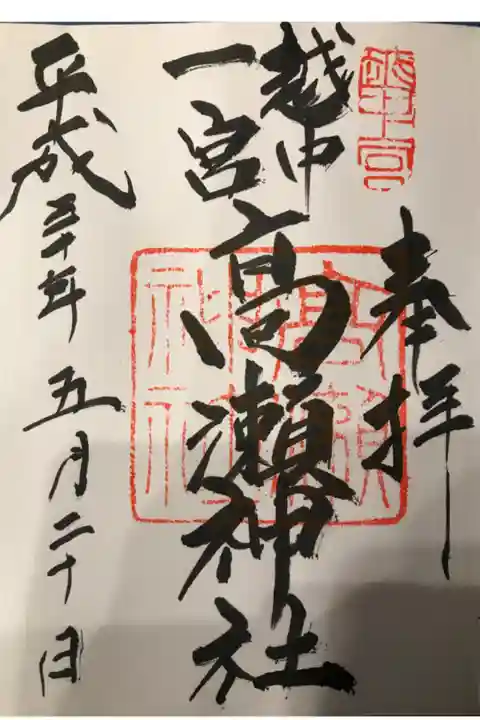 奉拝
越中
一宮
高瀬神社
平成三十年五月二十日
高瀬
神社